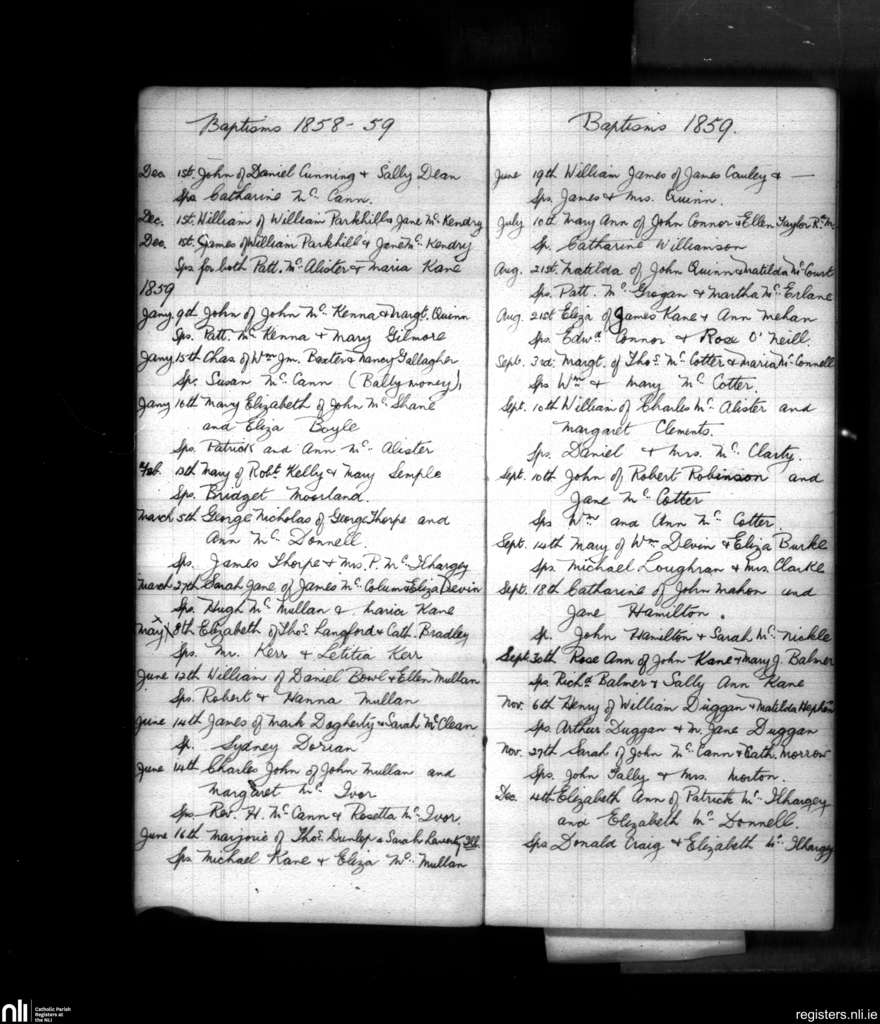 Baptisms 1858-59
Dec. 1st. John of Daniel Cunning & Sally Dean
Sps. Catharine McCann.
Dec. 1st. William of William Parkhill & Jane McKendry
Dec. 1st. James of William Parkhill & Jane McKendry
Sps for both Patt. McAlister & Maria Kane
1859
Jany. 9th John of John McKenna & Margt. Quinn
Sps. Patt. McKenna & Mary Gilmore
Jany 15th Chas of Wm Jm. Baxter & Nancy Gallagher
Sps. Susan McCann (Ballymoney),
Jany 16th Mary Elizabeth of John McShane
and Eliza Boyle
Sps. Patrick and Ann McAlister
Feb. 13th Mary of Robt. Kelly & Mary Semple
Sps. Bridget Moorland.
March 5th George Nicholas of George Thorpe and
Ann McDonnell.
Sps. James Thorpe & Mrs. P. McIlhargey
March 27th Sarah Jane of James McColum & Eliza Devin
Sps. Hugh McMullan & Maria Kane
May 8th Elizabeth of Thos. Langford & Cath. Bradley
Sps. Mr. Kerr & Letitia Kerr
June 12th William of Daniel Bowl & Ellen Mullan
Sps. Robert & Hanna Mullan
June 14th James of Mark Dogherty & Sarah McClean
Sp. Sydney Dorian
June 14th Charles John of John Mullan and
Margaret McIvor
Sps. Rev. H. McCann & Rosetta McIvor.
June 16th Marjorie of Thos. Dunlop & Sarah Laverty
Sps Michael Kane & Eliza McMullan
Baptisms 1859.
June 19th William James of James Cauley & —
Sps. James & Mrs. Quinn.
July 10th Mary Ann of John Connor & Ellen Taylor
Sp. Catharine Williamson
Aug. 21st. Matilda of John Quinn & Matilda McCourt
Sps. Patt. McGrogan & Martha McErlane
Aug. 21st Eliza of James Kane & Ann Mehan
Sps. Edwd. Connor & Rose O'Neill.
Sept. 3rd. Margt. of Thos. McCotter & Maria McConnell
Sps Wm & Mary McCotter.
Sept. 10th William of Charles McAlister and
Margaret Clements.
Sps. Daniel & Mrs. McClarty.
Sept. 10th John of Robert Robinson and
Jane McCotter
Sps Wm and Ann McCotter.
Sept. 14th Mary of Wm Devin & Eliza Burke
Sps. Michael Loughran & Mrs. Clarke
Sept. 18th Catharine of John Mahon and
Jane Hamilton.
Sp. John Hamilton & Sarah McNickle
Sept. 30th Rose Ann of John Kane & Mary J. Balmer
Sps. Richd. Balmer & Sally Ann Kane
Nov. 6th Henry of William Duggan & Matilda
Sps. Arthur Duggan & M. Jane Duggan
Nov. 27th Sarah of John McCann & Cath. Morrow
Sps. John Fally & Mrs. Morton.
Dec. 4th Elizabeth Ann of Patrick McIlhargey
and Elizabeth McDonnell.
Sps Donald Craig & Elizabeth McIlhargey
nli
Catholic Parish
Registers at
the NLI
registers.nli.ie